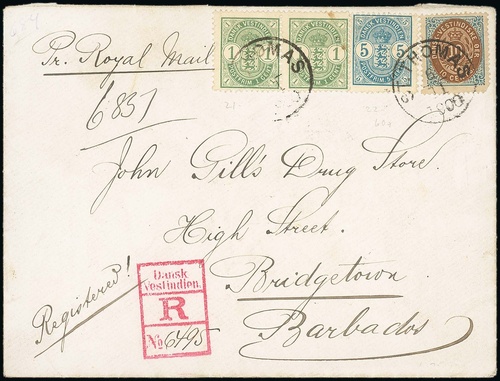 Pr. Royal Mail
DANSK VESTINDIEN
1 1
FRIMÆRKE 1 CENT
DANSK VESTINDIEN
1 1
DANSK VESTINDIEN
5 5
10 CENTS
THOMAS
ST THOMAS
6837
John Gill's Drug Store.
High Street.
Bridgetown
Barbados
Registered!
Dansk
Vestindien.
R
No 6495